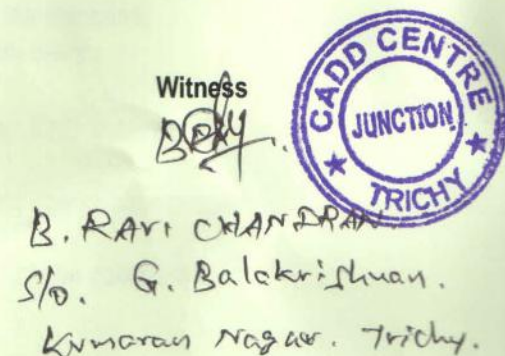 Witness
CADD CENTRE
JUNCTION
TRICHY
B. RAVI CHANDRAN
S/o. G. Balakrishnan.
Kumaran Nagar. Trichy.